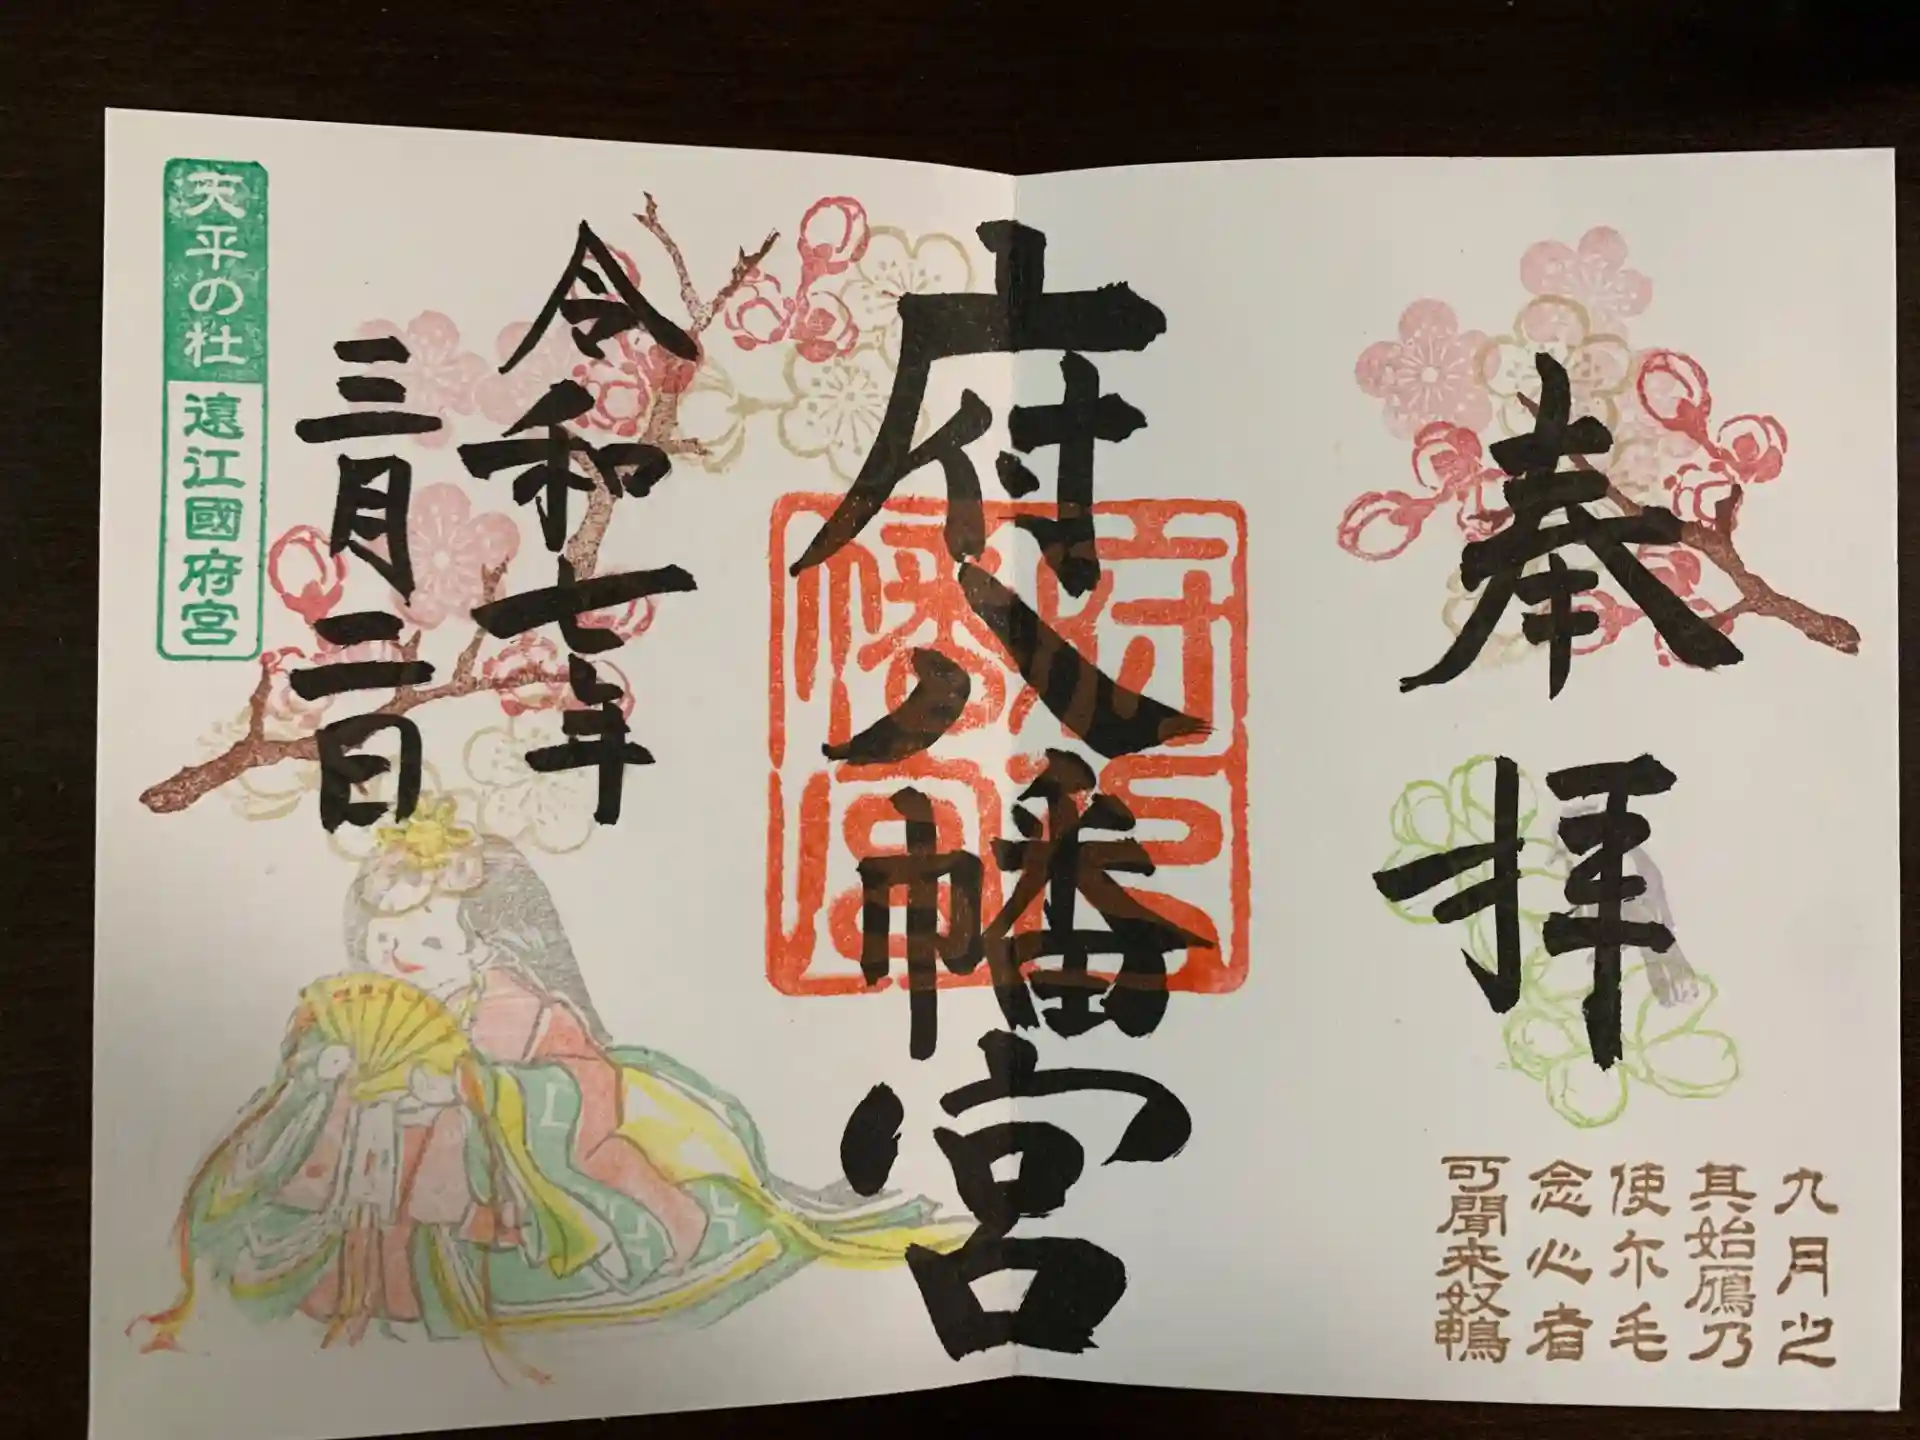 奉拝
九月之
其始鴈乃
使尓毛
念心者
可聞来奴鴨
府八幡宮
府八幡宮
令和七年
三月二日
天平の杜
遠江國府宮